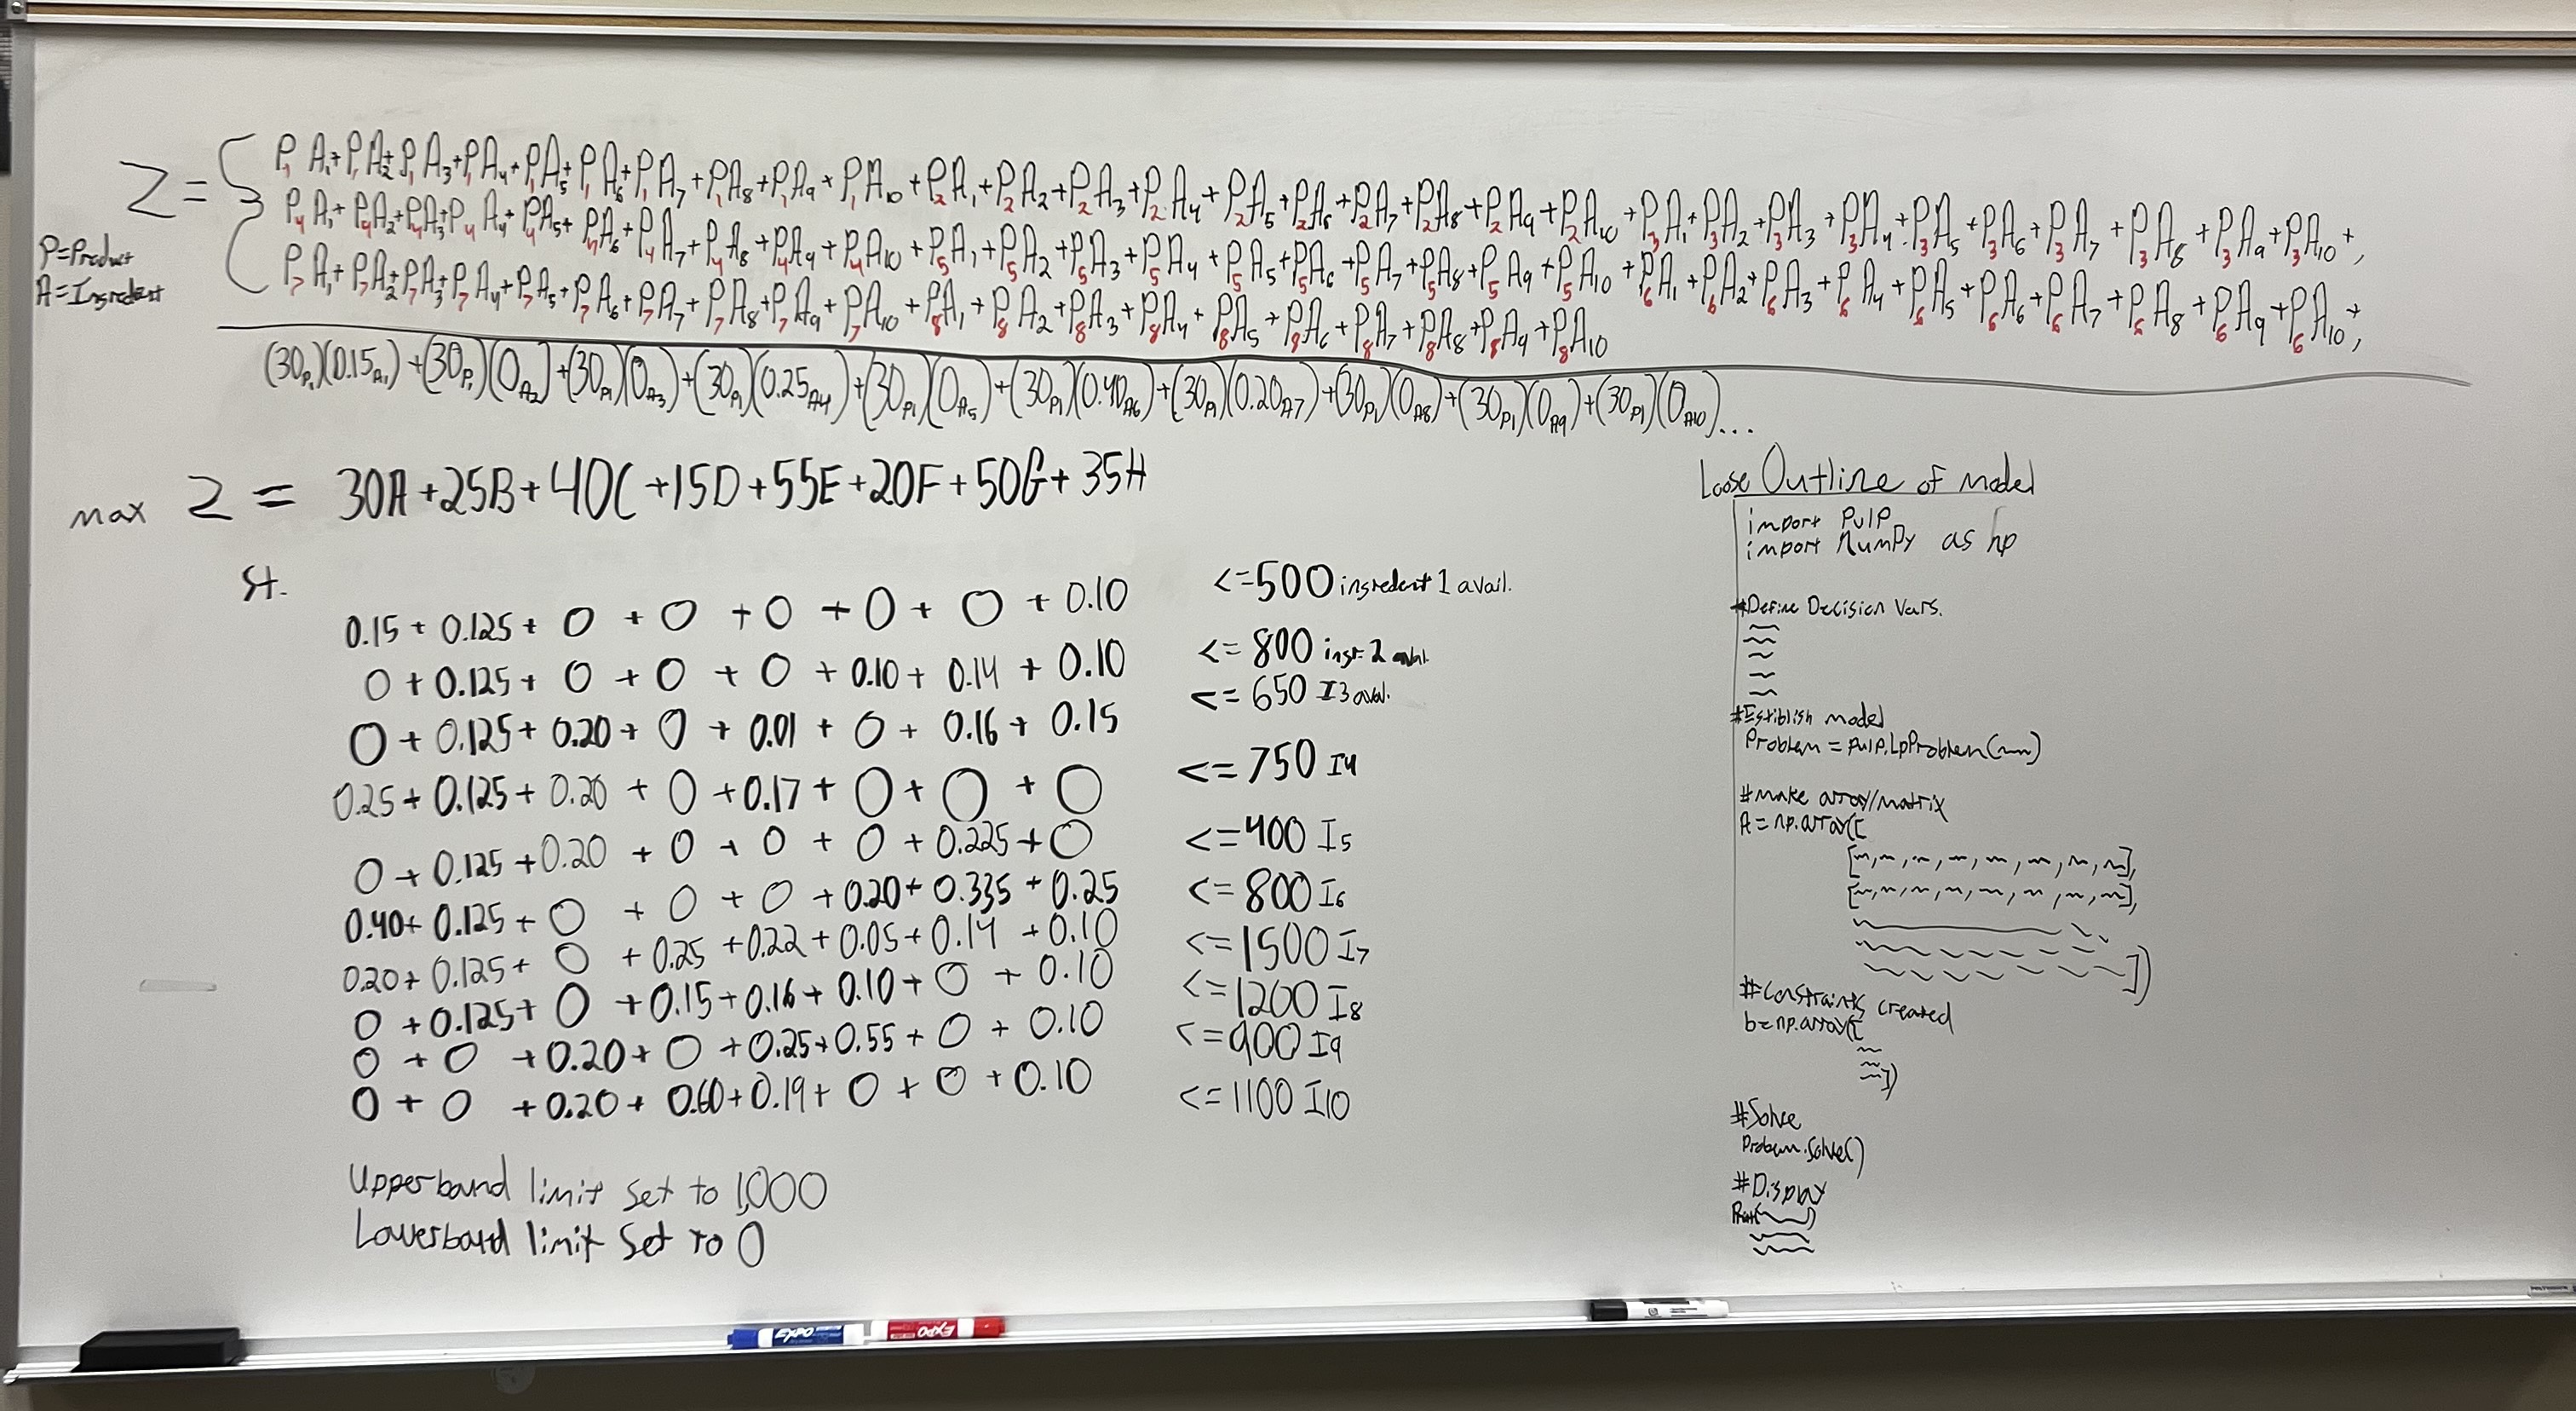 Z = { P1A1+P1A2+P1A3+P1A4+P1A5+P1A6+P1A7+P1A8+P1A9+P1A10+P2A1+P2A2+P2A3+P2A4+P2A5+P2A6+P2A7+P2A8+P2A9+P2A10+P3A1+P3A2+P3A3+P3A4+P3A5+P3A6+P3A7+P3A8+P3A9+P3A10+,
P4A1+P4A2+P4A3+P4A4+P4A5+P4A6+P4A7+P4A8+P4A9+P4A10+P5A1+P5A2+P5A3+P5A4+P5A5+P5A6+P5A7+P5A8+P5A9+P5A10+P6A1+P6A2+P6A3+P6A4+P6A5+P6A6+P6A7+P6A8+P6A9+P6A10+,
P7A1+P7A2+P7A3+P7A4+P7A5+P7A6+P7A7+P7A8+P7A9+P7A10+P8A1+P8A2+P8A3+P8A4+P8A5+P8A6+P8A7+P8A8+P8A9+P8A10
P=Product
A=Ingredent
(30P1)(0.15A1)+(30P1)(0A2)+(30P1)(0A3)+(30P1)(0.25A4)+(30P1)(0A5)+(30P1)(0.40A6)+(30P1)(0.20A7)+(30P1)(0A8)+(30P1)(0A9)+(30P1)(0A10)...
max Z = 30A+25B+40C+15D+55E+20F+50G+35H
St.
0.15+0.125+0+0+0+0+0+0.10 <=500 ingredent 1 avail.
0+0.125+0+0+0+0.10+0.14+0.10 <=800 ingr 2 avail.
0+0.125+0.20+0+0.01+0+0.16+0.15 <=650 I3 aval.
0.25+0.125+0.20+0+0.17+0+0+0 <=750 I4
0+0.125+0.20+0+0+0+0.225+0 <=400 I5
0.40+0.125+0+0+0+0.20+0.335+0.25 <=800 I6
0.20+0.125+0+0.25+0.22+0.05+0.14+0.10 <=1500 I7
0+0.125+0+0.15+0.16+0.10+0+0.10 <=1200 I8
0+0+0.20+0+0.25+0.55+0+0.10 <=900 I9
0+0+0.20+0.60+0.19+0+0+0.10 <=1100 I10
Upperband limit set to 1,000
Lowerband limit set to 0
Loose Outline of model
import PulP
import NumPy as np
#Define Decision Vars.
#Establish model
Problem = pulp.LpProblem( )
#make array/matrix
A = np.array([
[ , , , , , , , ],
[ , , , , , , , ],
])
#Constraints created
b=np.array([
])
#Solve
Problem.Solve()
#Display
Print( )
EXPO
EXPO